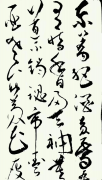 東籬把酒黃昏後
有暗香盈袖莫
道不銷魂簾捲
西風人比黃花瘦